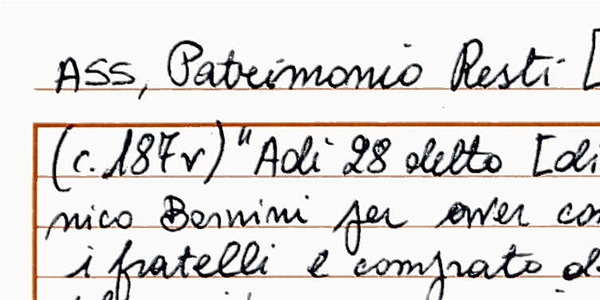 ASS, Patrimonio Resti [
(c. 187v) "Adi 28 detto [di
nico Bernini per aver com
i fratelli e comprato da